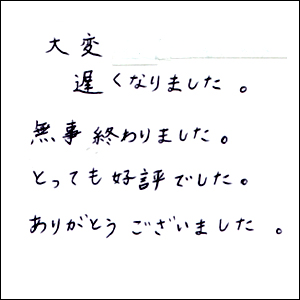 大変
遅くなりました。
無事終わりました。
とっても好評でした。
ありがとうございました。